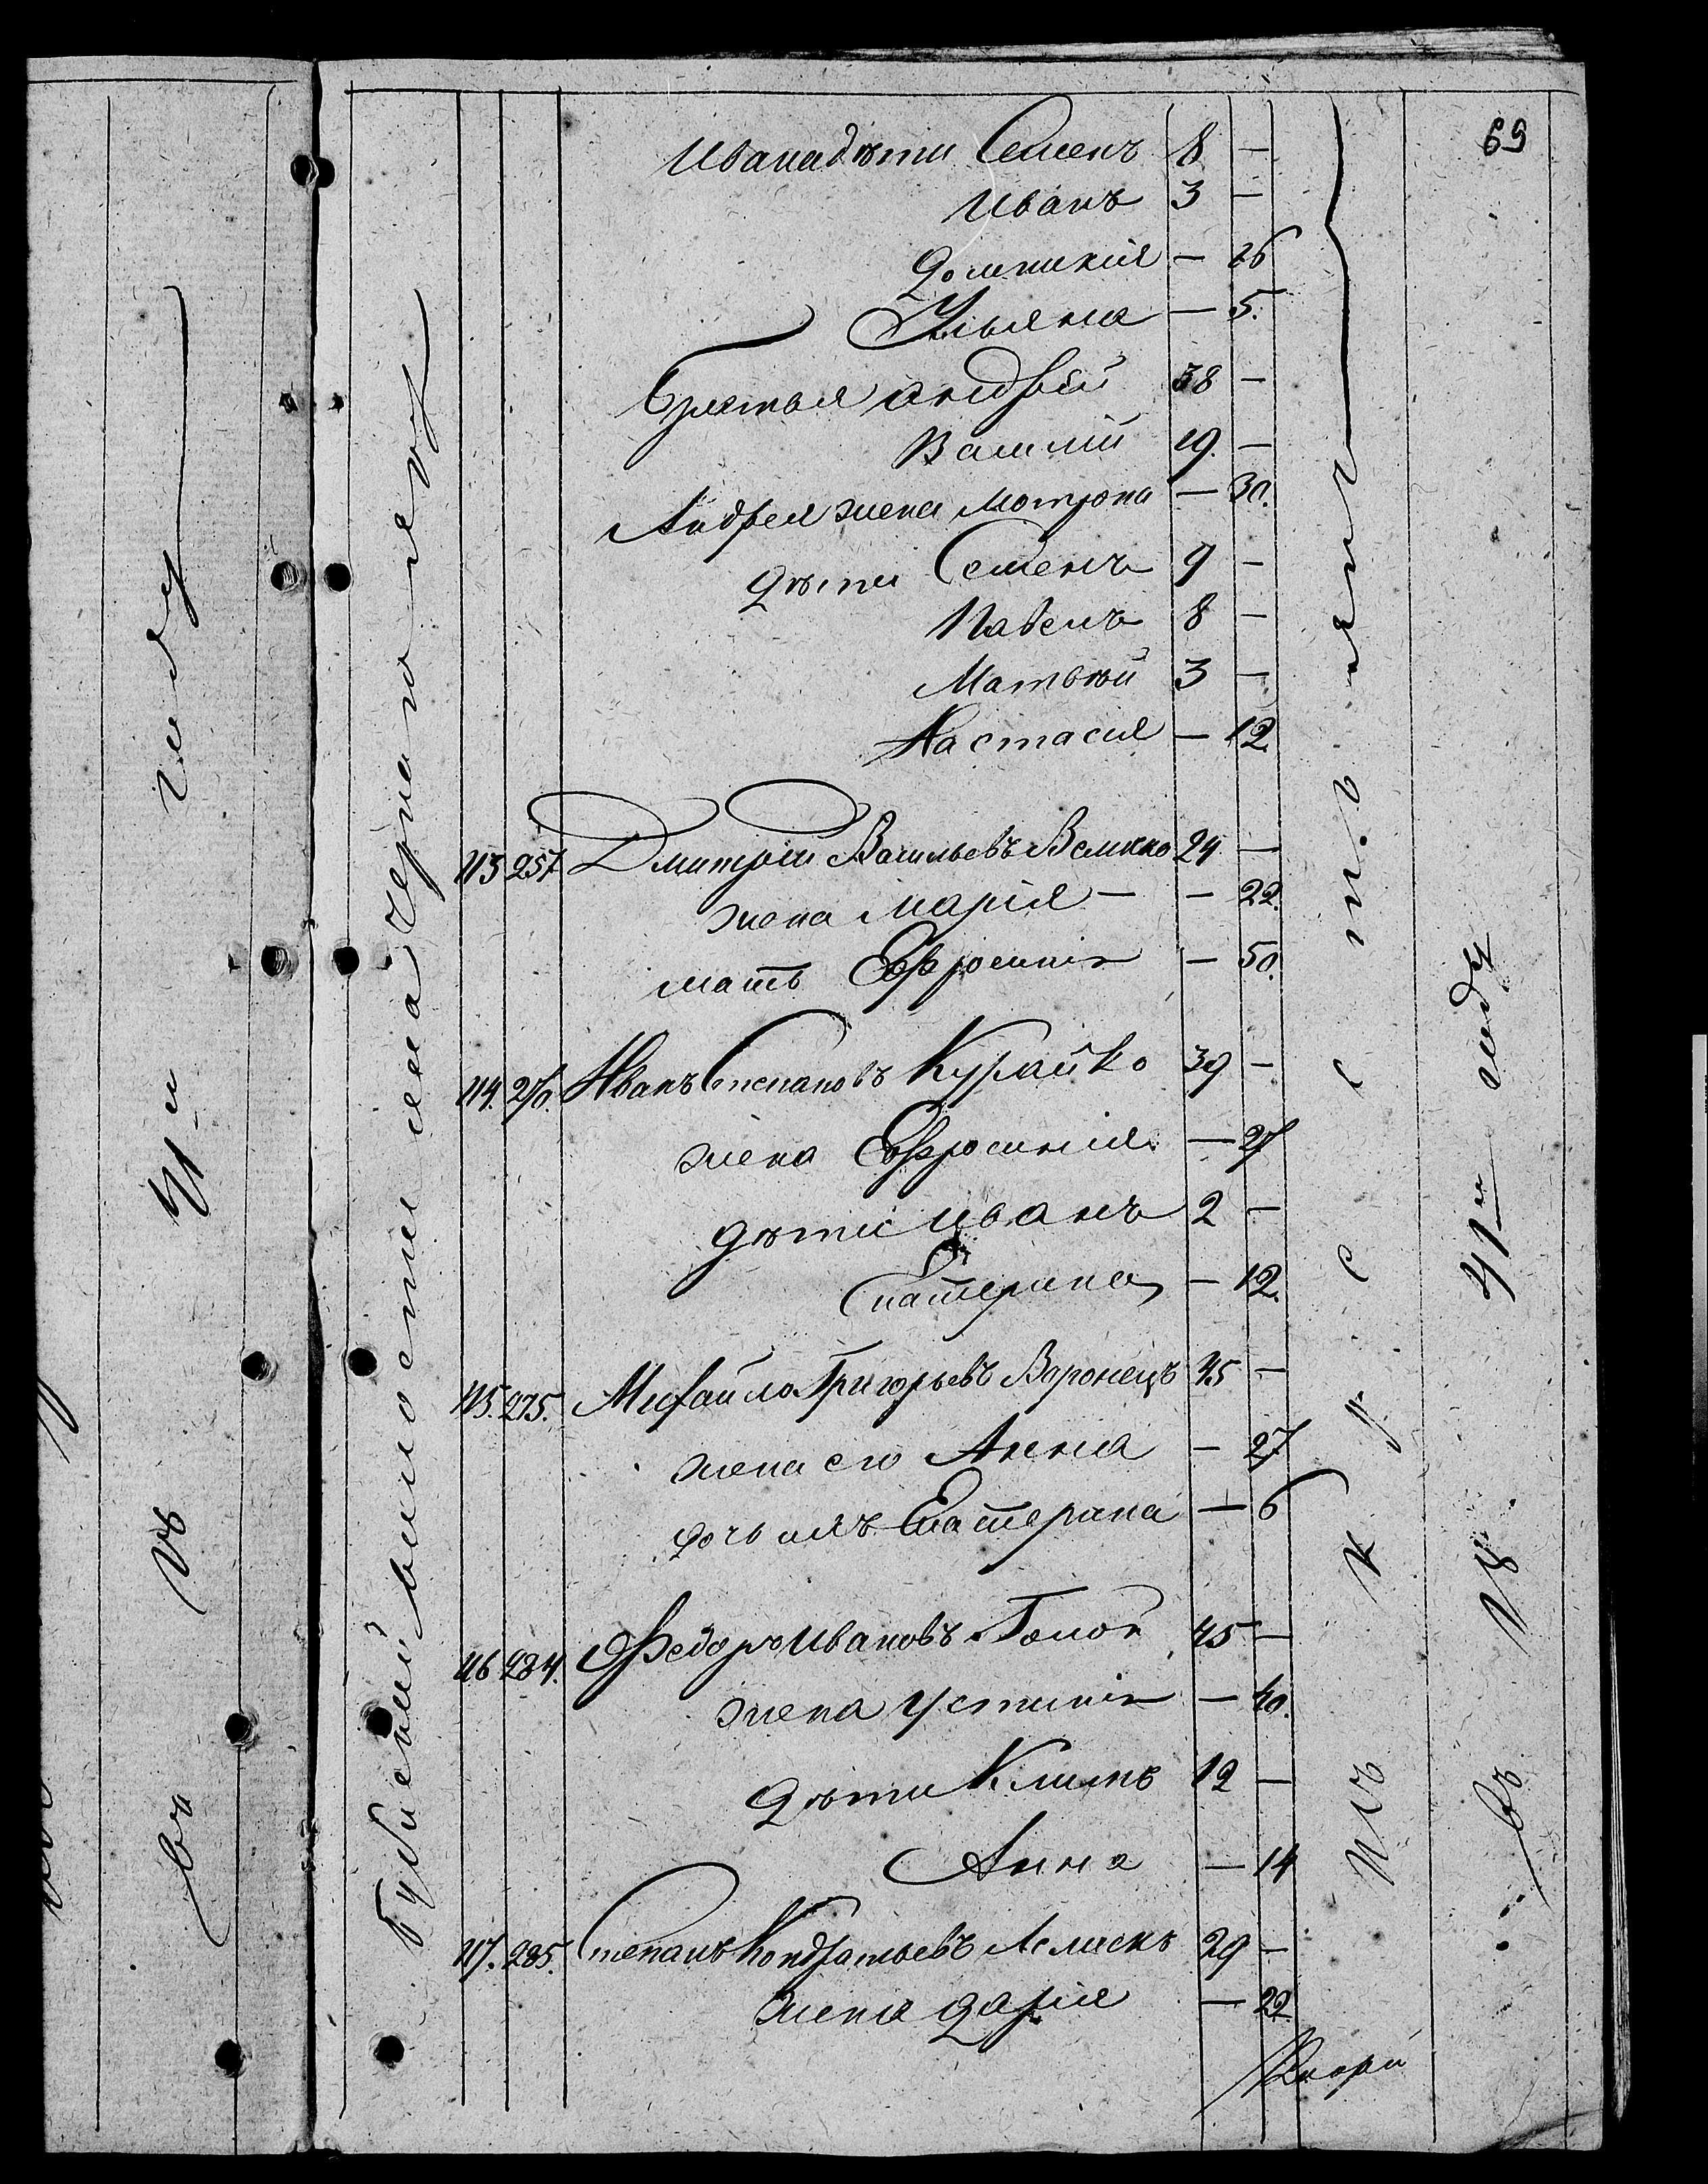 69
Ивана дѣти Семенъ 8 —
Иванъ 3 —
Домникія — 16
Ульяна — 5.
Братья андрѣй 38 —
Василій 19. —
Андрея жена Мотрона — 30.
Дѣти Семенъ 9 —
Павелъ 8 —
Матвѣй 3 —
Настасія — 12.
113 257 Дмитрій Васильевъ Велико 24 —
жена Марія — — 22.
мать Евфросинія — 50.
114. 270. Иванъ Степановъ Курайко 39 —
жена Евфросинія — 27
дѣти иванъ 2 —
Екатерина — 12.
115. 275. Михайло Григорьевъ Воронецъ 45 —
жена его Анна — 27
дочь ихъ Екатерина — 6
116 284. Федоръ Ивановъ 45 —
жена Устинія — 40.
Дѣти Климъ 12 —
Анна — 14
117. 285. Степанъ Кондратьевъ 29 —
жена дарія — 22
въ 18 41м году